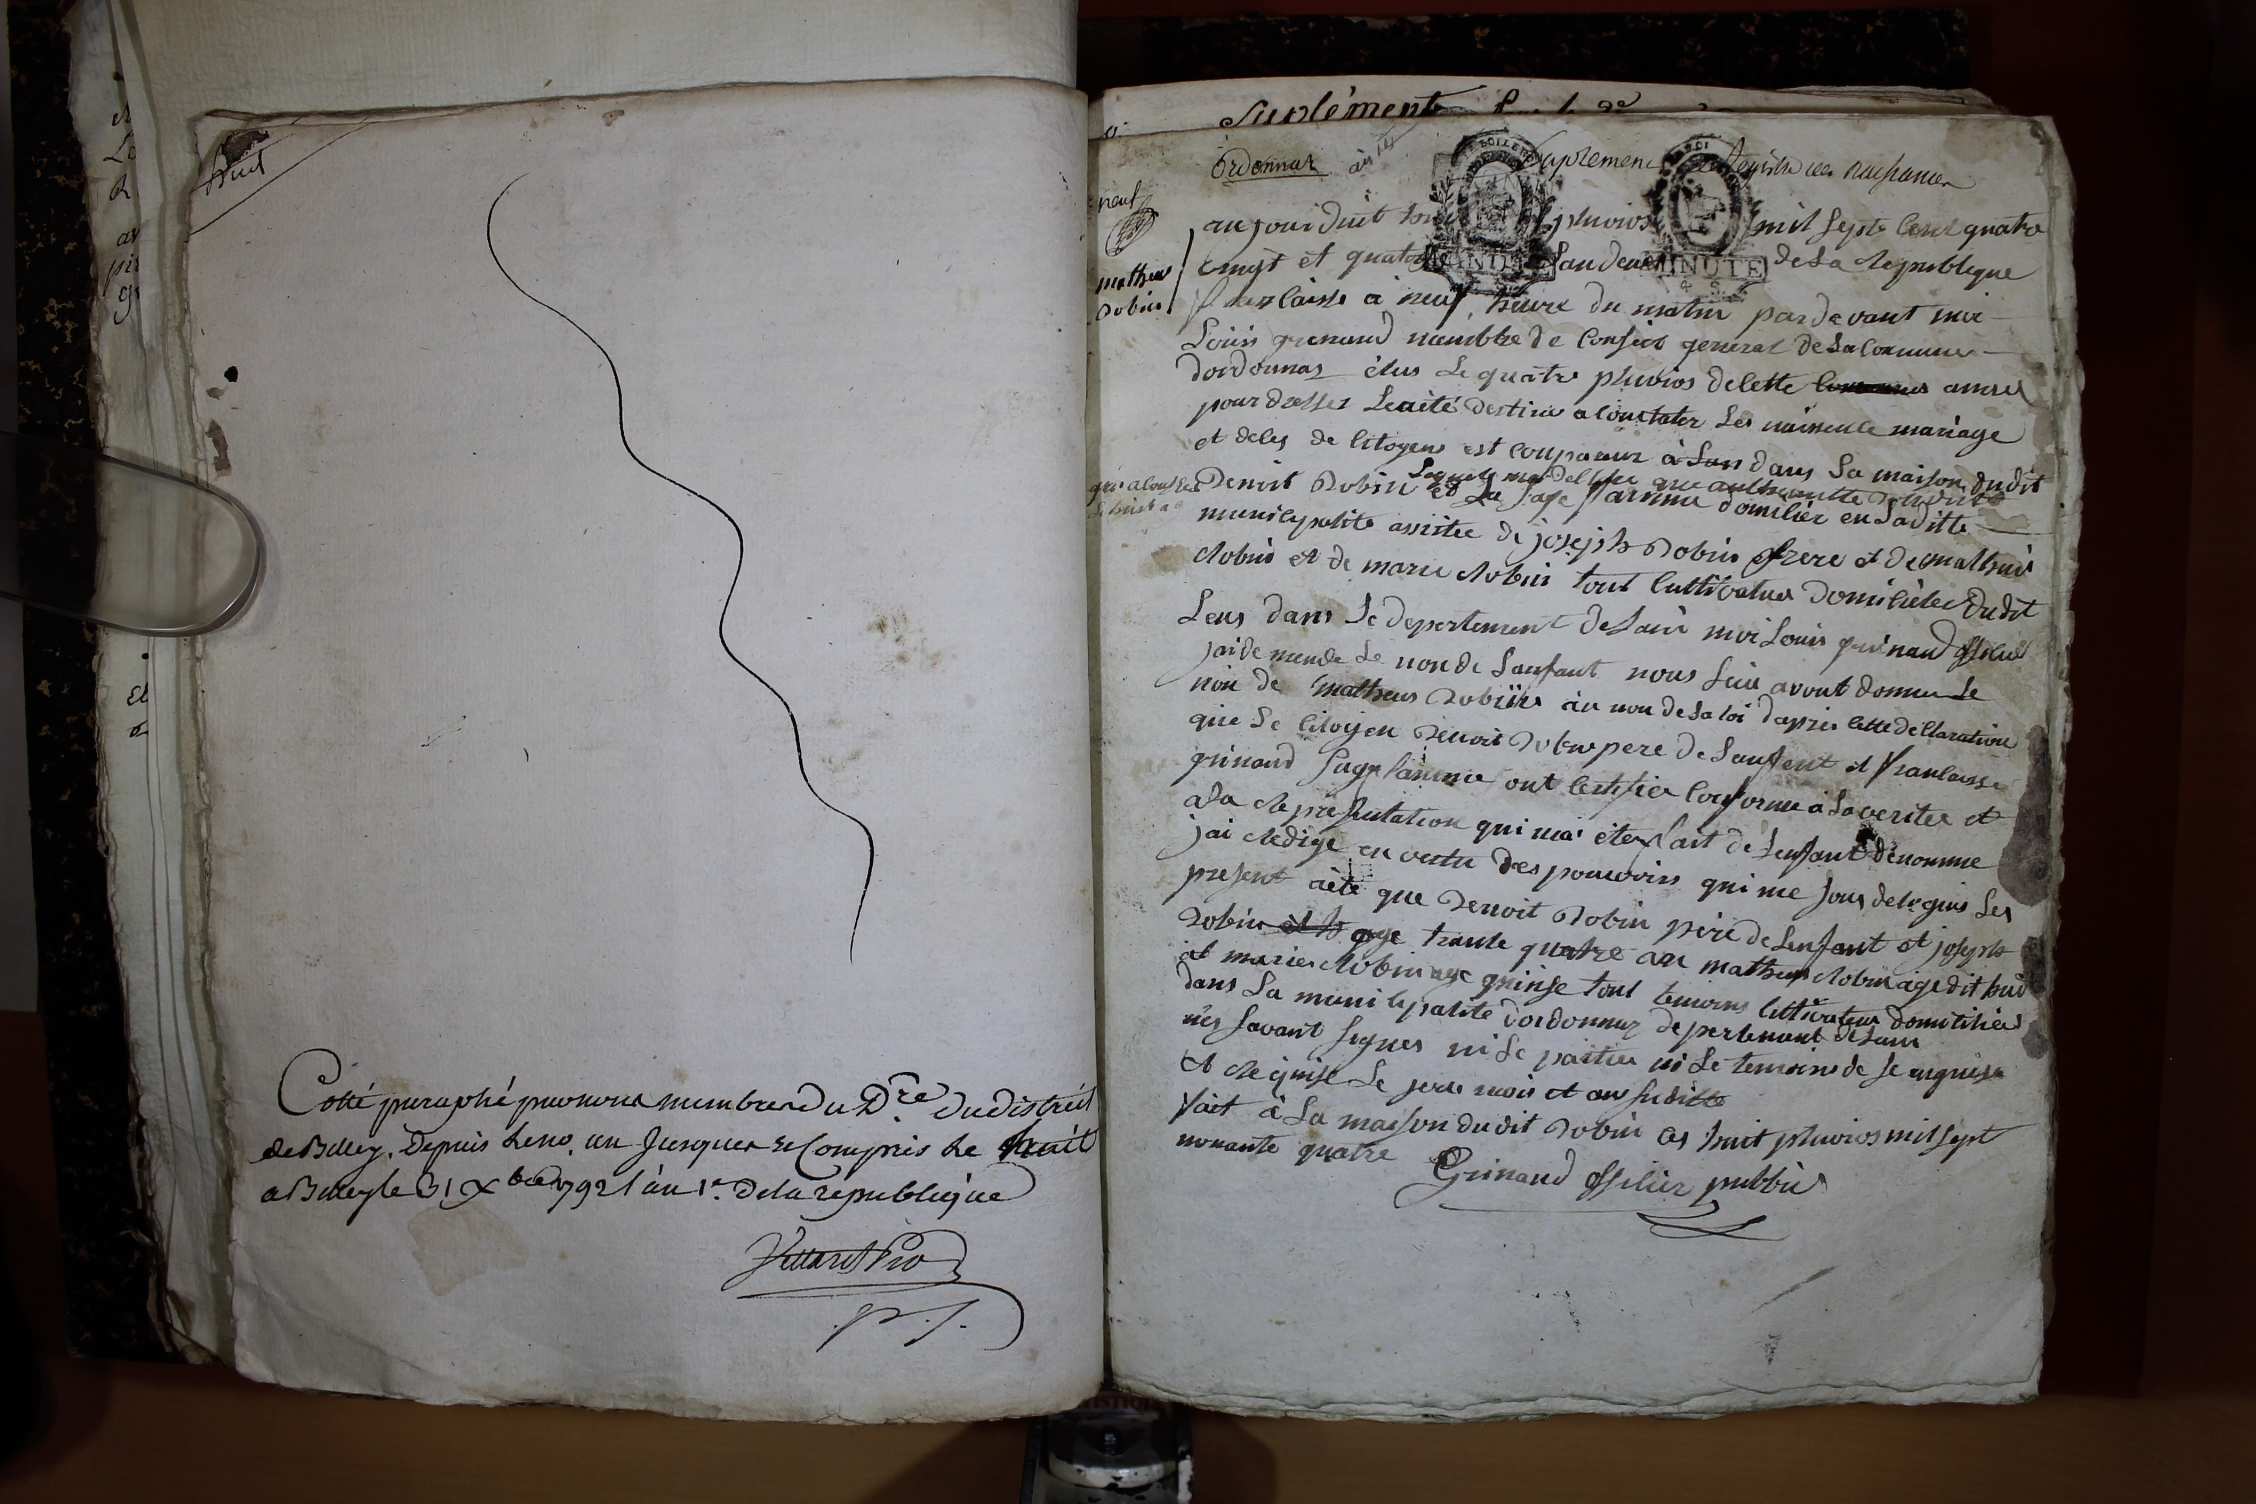 huit
Cotté paraphé par nous membre du D.re du district
de Belley, depuis le no. un jusques et compris le huit
a Belley le 31 Xbre 1792 l'an 1.r de la republique
p. s.
Suplément
ordonnas
Suplement Registre des naissances
neuf
mathieu
Robin
aujourdhuit pluvios mil sept cent quatre
vingt et quator lan deux de la Republique
francaisse a neuf heure du matin par devant moi
Louis grinand membre de conseil general de la commune
dordonnas élus le quatre pluvios de cette année
pour dresser le acté destine a constater les naissence mariage
et deces de citoyens est comparu dans la maison dudit
Benoit Robin et sa fage famme domicilier en laditte
municipalite assistee de joseph Robin frere et de mathieu
Robin et de marie Robin tout cultivateur domicilies dudit
Leus dans le departement de lain moi Louis grinand officier
jai demende le non de lanfant nous avont donner le
non de mathieu Robin au non de la loi dapres cette declaration
que le citoyen Benoit Robin pere de lenfent et francaisse
grinand sage famme ont certifier conforme a la veritee et
a la Representation qui ma etez fait de lenfant denomme
jai Redige en vertu des pouvoirs qui me sous delegues les
present acte que Benoit Robin pere de lenfant et joseph
Robin age trante quatre an mathieu Robin age dit huit
et marie Robin age quinse tout temoins cultivateur domicilier
dans la municipalite dordonnaz depertement de lain
nes savant signer ni le partie ni le temoins de se enquis
et Requise le jour mois et an suditte
fait a la maison dudit Robin les huit pluvios mil sept
nonante quatre
Grinand officier publié
MINUTE